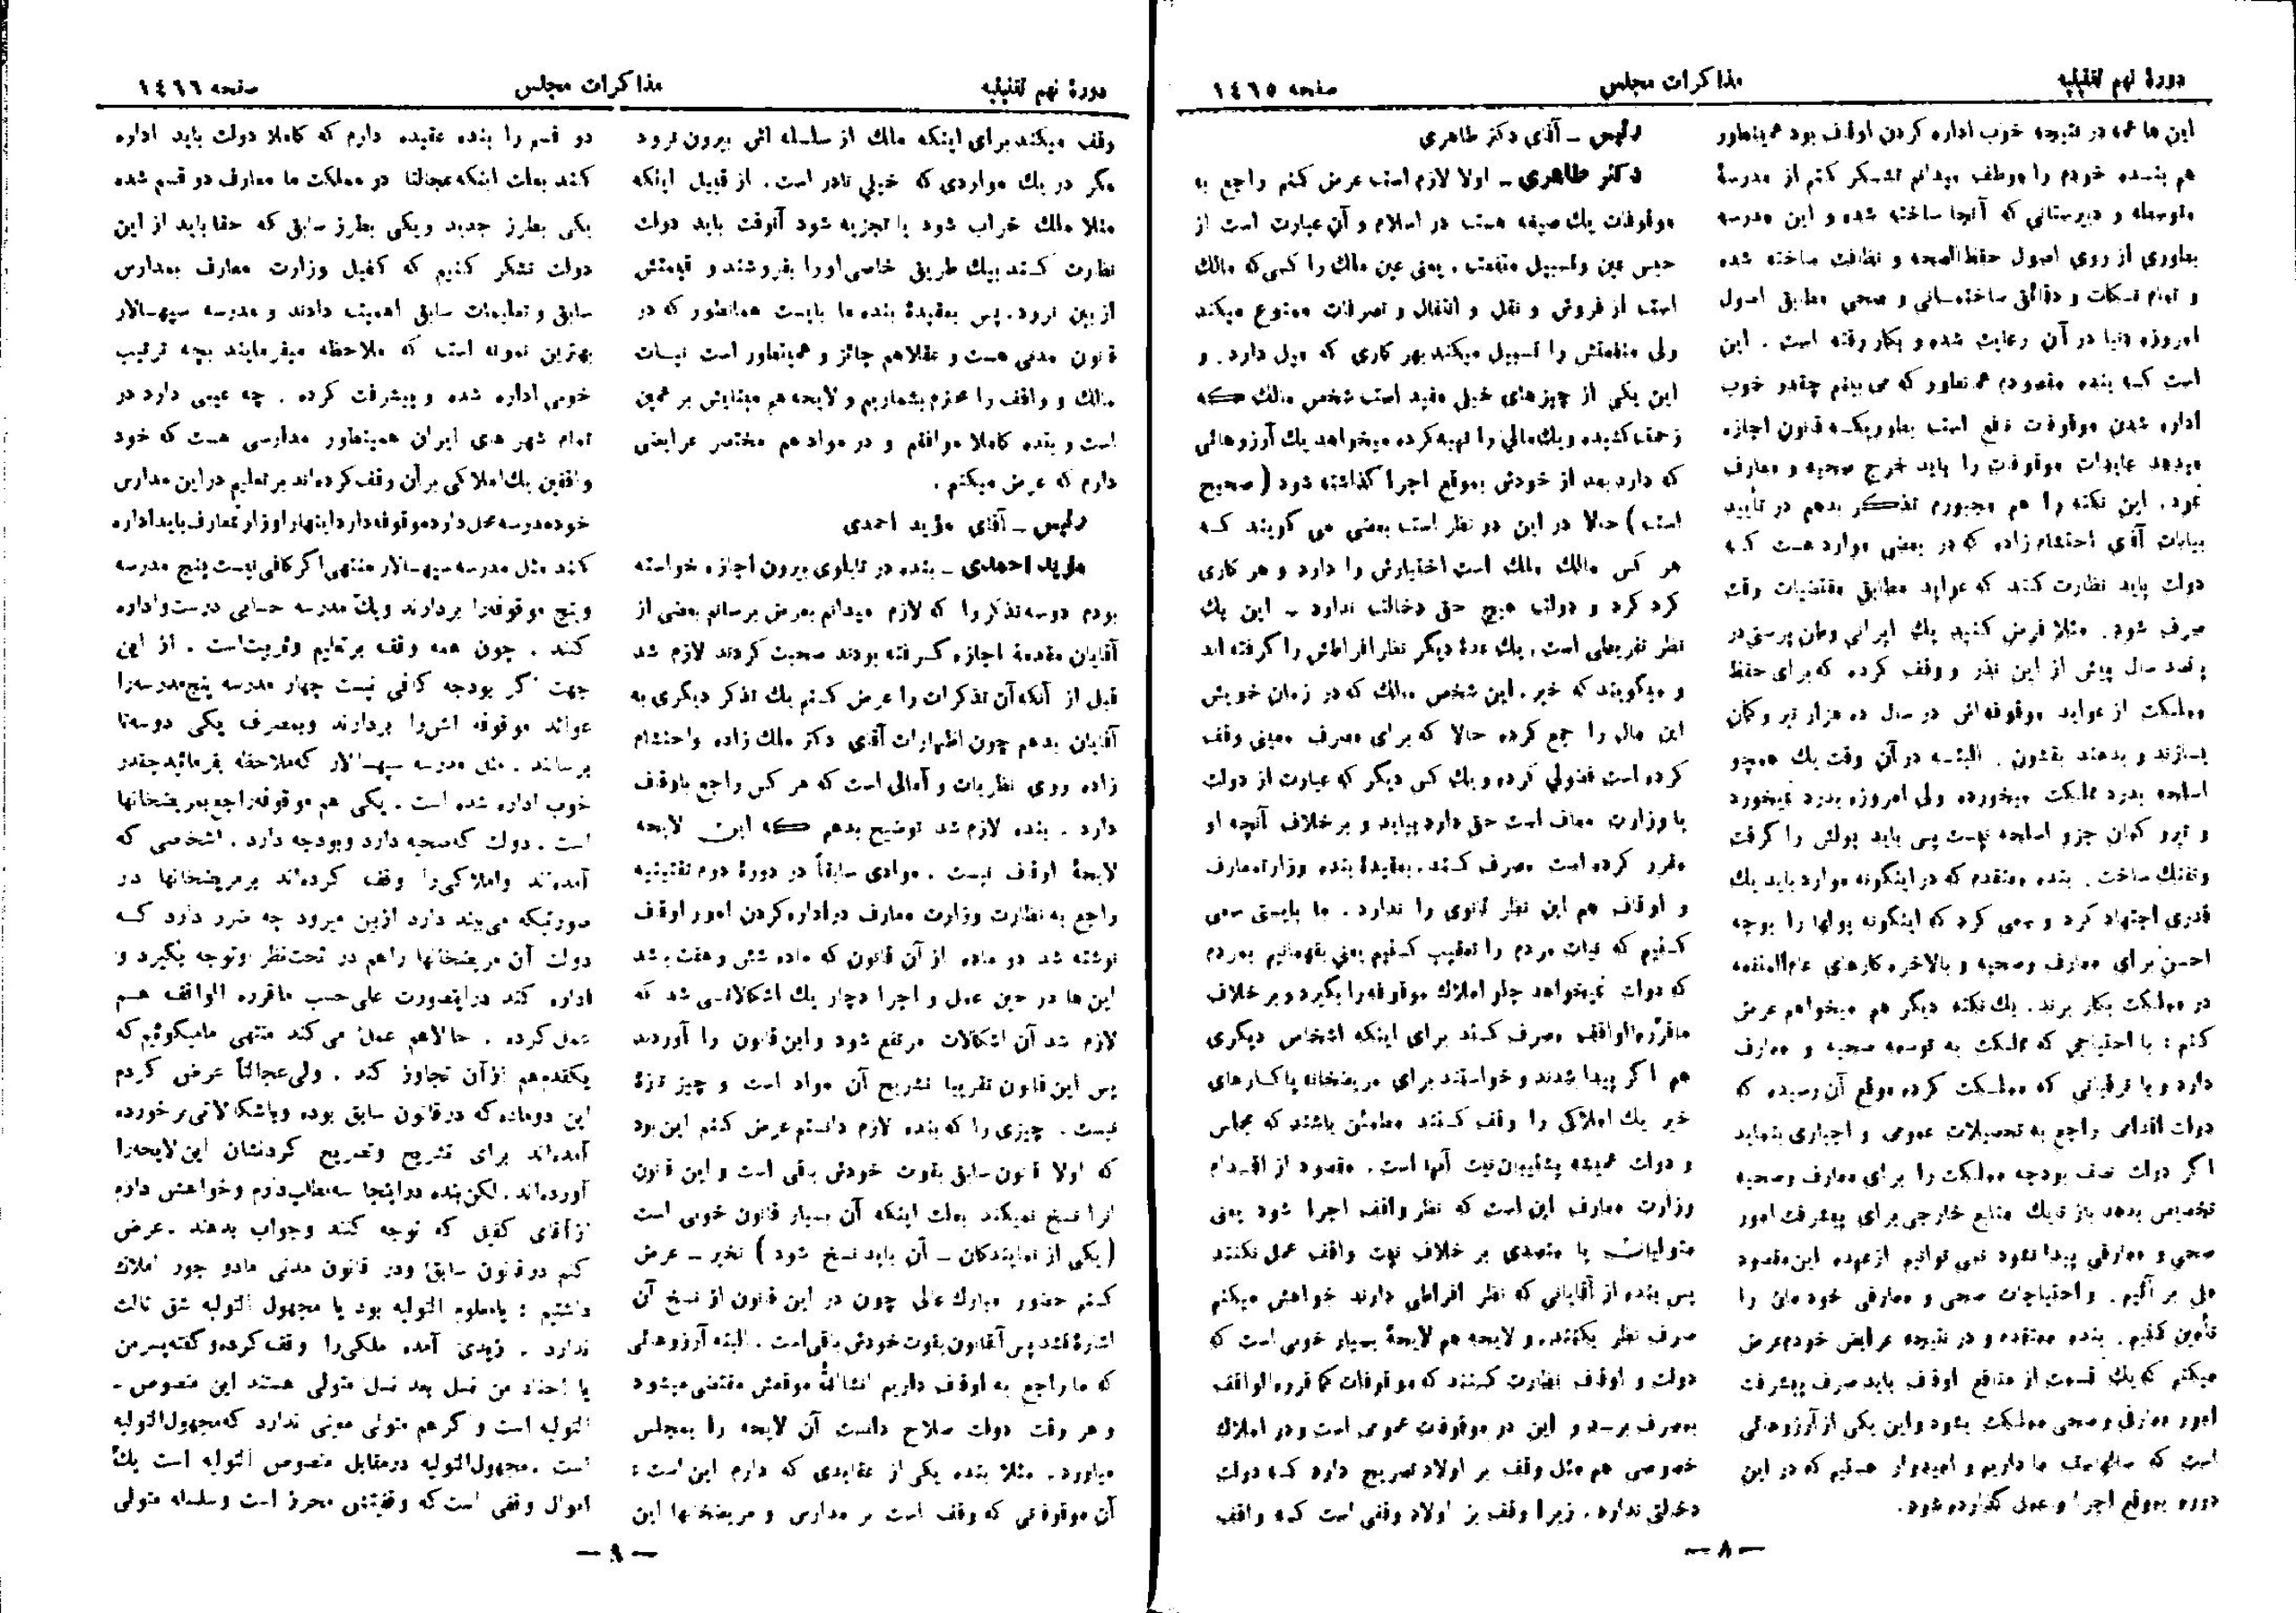 دورهٔ نهم تقنینیه
مذاکرات مجلس
صفحه ۱٤٦٥
این ها همه در نتیجه خوب اداره کردن اوقاف بود همینطور
هم بنده خودم را موظف میدانم تشکر کنم از مدرسهٔ
متوسطه و دبیرستانی که آنجا ساخته شده و این مدرسه
بطوری از روی اصول حفظ الصحه و نظافت ساخته شده
و تمام نکات و دقائق ساختمانی و صحی مطابق اصول
امروزه دنیا در آن رعایت شده و بکار رفته است . این
است که بنده مقصودم همانطور که می بینم چقدر خوب
اداره شدن موقوفات نافع است بطوریکه قانون اجازه
میدهد عایدات موقوفات را باید خرج صحیه و معارف
نمود . این نکته را هم مجبورم تذکر بدهم در تأیید
بیانات آقای احتشام زاده که در بعضی موارد هست که
دولت باید نظارت کند که عواید مطابق مقتضیات وقت
صرف شود . مثلا فرض کنید یك ایرانی وطن پرستی در
پانصد سال پیش از این نذر و وقف کرده که برای حفظ
مملکت از عواید موقوفه اش در سال ده هزار تیر و کمان
بسازند و بدهند بقشون . البته در آن وقت یك همچو
اسلحه بدرد مملکت میخورده ولی امروزه بدرد نمیخورد
و تیر و کمان جزو اسلحه نیست پس باید پولش را گرفت
و تفنك ساخت . بنده معتقدم که در اینگونه موارد باید یك
قدری اجتهاد کرد و سعی کرد که اینگونه پولها را بوجه
احسن برای معارف و صحیه و بالاخره کارهای عام المنفعه
در مملکت بکار برند . یك نکته دیگر هم میخواهم عرض
کنم : با احتیاجی که مملکت به توسعه صحیه و معارف
دارد و با ترقیاتی که مملکت کرده موقع آن رسیده که
دولت اقدامی راجع به تحصیلات عمومی و اجباری بنماید
اگر دولت نصف بودجه مملکت را برای معارف و صحیه
تخصیص بدهد باز تا یك منابع خارجی برای پیشرفت امور
صحی و معارفی پیدا نشود نمی توانیم از عهده این مقصود
ملی بر آئیم . و احتیاجات صحی و معارفی خودمان را
تأمین کنیم . بنده معتقدم و در نتیجه عرایض خودم عرض
میکنم که یك قسمت از منافع اوقاف باید صرف پیشرفت
امور معارفی و صحی مملکت بشود و این یکی از آرزوهائی
است که سالهاست ما داریم و امیدوار هستیم که در این
دوره بموقع اجرا و عمل گذارده شود .
رئیس ـ آقای دکتر طاهری
دکتر طاهری ـ اولا لازم است عرض کنم راجع به
موقوفات یك صیغه هست در اسلام و آن عبارت است از
حبس عین و تسبیل منفعت . یعنی عین ملك را کسی که مالك
است از فروش و نقل و انتقال و تصرفات ممنوع میکند
ولی منفعتش را تسبیل میکند بهر کاری که میل دارد . و
این یکی از چیزهای خیلی مفید است شخص مالك که
زحمت کشیده و یك مالی را تهیه کرده میخواهد یك آرزوهائی
که دارد بعد از خودش بموقع اجرا گذاشته شود ( صحیح
است ) حالا در این دو نظر است بعضی می گویند که
هر کس مالك ملك است اختیارش را دارد و هر کاری
کرد کرد و دولت هیچ حق دخالت ندارد ـ این یك
نظر تفریطی است . یك عدهٔ دیگر نظر افراطش را گرفته اند
و میگویند که خیر . این شخص مالك که در زمان خویش
این مال را جمع کرده حالا که برای مصرف معینی وقف
کرده است فضولی کرده و یك کس دیگر که عبارت از دولت
یا وزارت معارف است حق دارد بیاید و بر خلاف آنچه او
مقرر کرده است مصرف کند . بعقیدهٔ بنده وزارت معارف
و اوقاف هم این نظر ثانوی را ندارد . ما بایستی سعی
کنیم که نیات مردم را تعقیب کنیم یعنی بفهمانیم بمردم
که دولت نمیخواهد جلو املاك موقوفه را بگیرد و بر خلاف
ماقرره الواقف مصرف کند برای اینکه اشخاص دیگری
هم اگر پیدا شدند و خواستند برای مریضخانه یا کارهای
خیر یك املاکی را وقف کنند مطمئن باشند که مجلس
و دولت همیشه پشتیبان نیت آنها است . مقصود از اقدام
وزارت معارف این است که نظر واقف اجرا شود یعنی
متولیان یا متصدی بر خلاف نیت واقف عمل نکنند
پس بنده از آقایانی که نظر افراطی دارند خواهش میکنم
صرف نظر بکنند . و لایحه هم لایحهٔ بسیار خوبی است که
دولت و اوقاف نظارت کنند که موقوفات کما قرره الواقف
بمصرف برسد و این در موقوفات عمومی است و در املاك
خصوصی هم مثل وقف بر اولاد تصریح دارد که دولت
دخالتی ندارد . زیرا وقف بر اولاد وقفی است که واقف
— ۸ —
دورهٔ نهم تقنینیه
مذاکرات مجلس
صفحه ۱٤٦٦
وقف میکند برای اینکه ملك از سلسله اش بیرون نرود
مگر در یك مواردی که خیلی نادر است . از قبیل اینکه
مثلا ملك خراب شود یا تجزیه شود آنوقت باید دولت
نظارت کند بیك طریق خاصی او را بفروشند و قیمتش
از بین نرود . پس بعقیدهٔ بنده ما بایست همانطور که در
قانون مدنی هست و عقلا هم جائز و همینطور است نیات
مالك و واقف را محترم بشماریم و لایحه هم مبنایش بر همین
است و بنده کاملا موافقم و در مواد هم مختصر عرایضی
دارم که عرض میکنم .
رئیس ـ آقای مؤید احمدی
مؤید احمدی ـ بنده در تابلوی بیرون اجازه خواسته
بودم دو سه تذکر را که لازم میدانم بعرض برسانم بعضی از
آقایان مقدمهٔ اجازه گرفته بودند صحبت کردند لازم شد
قبل از آنکه آن تذکرات را عرض کنم یك تذکر دیگری به
آقایان بدهم چون اظهارات آقای دکتر ملك زاده و احتشام
زاده روی نظریات و آمالی است که هر کس راجع باوقاف
دارد . بنده لازم شد توضیح بدهم که این لایحه
لایحهٔ اوقاف نیست . موادی سابقاً در دورهٔ دوم تقنینیه
راجع به نظارت وزارت معارف در اداره کردن امور اوقاف
نوشته شد دو ماده از آن قانون که ماده شش و هفت باشد
این ها در حین عمل و اجرا دچار یك اشکالاتی شد که
لازم شد آن اشکالات مرتفع شود و این قانون را آوردند
پس این قانون تقریبا تشریح آن مواد است و چیز تازهٔ
نیست . چیزی را که بنده لازم دانستم عرض کنم این بود
که اولا قانون سابق بقوت خودش باقی است و این قانون
آنرا نسخ نمیکند بعلت اینکه آن بسیار قانون خوبی است
( یکی از نمایندگان ـ آن باید نسخ شود ) نخیر ـ عرض
کنم حضور مبارك عالی چون در این قانون از نسخ آن
اشاره نشد پس آنقانون بقوت خودش باقی است . البته آرزوهائی
که ما راجع به اوقاف داریم انشاالله موقعش مقتضی میشود
و هر وقت دولت صلاح دانست آن لایحه را بمجلس
میاورد . مثلا بنده یکی از عقایدی که دارم این است :
آن موقوفاتی که وقف است بر مدارس و مریضخانها این
دو قسم را بنده عقیده دارم که کاملا دولت باید اداره
کند بعلت اینکه عجالتا در مملکت ما معارف دو قسم شده
یکی بطرز جدید و یکی بطرز سابق که حقا باید از این
دولت تشکر کنیم که کفیل وزارت معارف بمدارس
سابق و تعلیمات سابق اهمیت دادند و مدرسه سپهسالار
بهترین نمونه است که ملاحظه میفرمایند بچه ترتیب
خوبی اداره شده و پیشرفت کرده . چه عیبی دارد در
تمام شهر های ایران همینطور مدارسی هست که خود
واقفین یك املاکی بر آن وقف کرده اند بر تعلیم در این مدارس
خود مدرسه محل دارد موقوفه دارد اینهارا وزارت معارف باید اداره
کند مثل مدرسه سپهسالار منتهی اگر کافی نیست پنج مدرسه
و پنج موقوفه را بردارند و یك مدرسه حسابی درست و اداره
کنند . چون همه وقف بر تعلیم و تربیت است . از این
جهت اگر بودجه کافی نیست چهار مدرسه پنج مدرسه را
عوائد موقوفه اش را بردارند و بمصرف یکی دو سه تا
برسانند . مثل مدرسه سپهسالار که ملاحظه بفرمائید چقدر
خوب اداره شده است . یکی هم موقوفه راجع بمریضخانها
است . دولت که صحیه دارد و بودجه دارد . اشخاصی که
آمده اند و املاکی را وقف کرده اند بر مریضخانها در
صورتیکه می بیند دارد از بین میرود چه ضرر دارد که
دولت آن مریضخانها را هم در تحت نظر و توجه بگیرد و
اداره کند در اینصورت علی حسب ماقرره الواقف هم
عمل کرده . حالا هم عمل می کند منتهی ما میگوئیم که
یکقدم هم از آن تجاوز کند . ولی عجالتاً عرض کردم
این دو ماده که در قانون سابق بوده و باشکالاتی بر خورده
آمده اند برای تشریح و تصریح کردنشان این لایحه را
آورده اند . لکن بنده در اینجا سه مطلب دارم و خواهش دارم
از آقای کفیل که توجه کنند و جواب بدهند . عرض
کنم در قانون سابق و در قانون مدنی ما دو جور املاك
داشتیم : یا معلوم التولیه بود یا مجهول التولیه شق ثالث
ندارد . زیدی آمده ملکی را وقف کرده و گفته پسر من
یا احفاد من نسل بعد نسل متولی هستند این منصوص ـ
التولیه است و اگر هم متولی معینی ندارد که مجهول التولیه
است . مجهول التولیه در مقابل منصوص التولیه است یك
اموال وقفی است که وقفیتش محرز است و سلسله متولی
— ۸ —